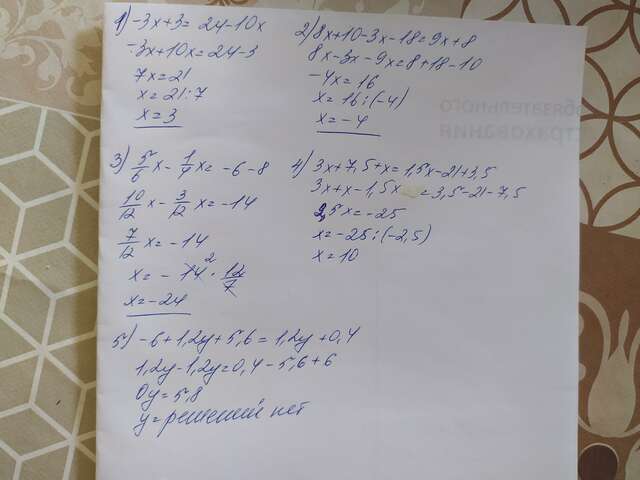 1) -3x+3= 24-10x
-3x+10x=24-3
7x=21
x=21:7
x=3
2) 8x+10-3x-18=9x+8
8x-3x-9x=8+18-10
-4x=16
x=16:(-4)
x=-4
3) 5/6 x- 1/4 x= -6-8
10/12 x- 3/12 x=-14
7/12 x=-14
x=-14² · 12/7
x=-24
4) 3x+7,5+x=1,5x-21+3,5
3x+x-1,5x =3,5-21-7,5
2,5x=-25
x=-25:(-2,5)
x=10
5) -6+1,2y+5,6=1,2y+0,4
1,2y-1,2y=0,4-5,6+6
0y=5,8
y=решений нет
обязательного
страхования